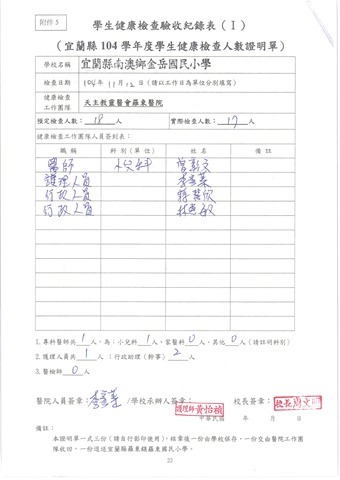 附件 5
學生健康檢查驗收紀錄表 ( I )
(宜蘭縣 104 學年度學生健康檢查人數證明單)
學校名稱 宜蘭縣南澳鄉金岳國民小學
檢查日期 104年 11月 12日 (請以工作日為單位分別填寫)
健康檢查工作團隊 天主教靈醫會羅東醫院
預定檢查人數: 18 人 實際檢查人數: 17 人
健康檢查工作團隊人員簽到表:
職稱 科別(單位) 姓名 備註
醫師
護理人員
行政人員
行政人員
1.專科醫師共 1 人,為:小兒科 1 人、家醫科 0 人、其他 0 人(請註明科別)
2.護理人員共 1 人;行政助理(幹事) 2 人
3.醫檢師 0 人
醫院人員簽章: /學校承辦人簽章: 護理師黃怡禎 校長簽章:
中華民國 年 月 日
備註:
本證明單一式三份(請自行影印使用),核章後一份由學校保存,一份交由醫院工作團
隊收回,一份送送宜蘭縣羅東鎮羅東國民小學。
22